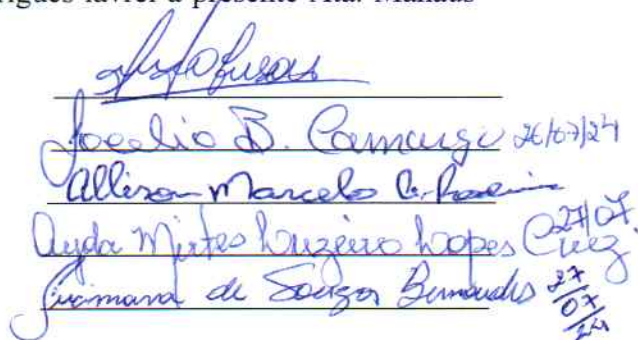 lavrei a presente Ata. Manaus
Jocelio B. Camargo 26/07/24
Allison Marcelo C.
Ayda Mirtes Luzeiro Lopes Cruz 27/07
de Souza 27/07/24